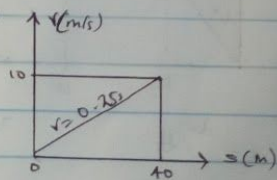 V(m/s)
10
V= 0.25s
0
40
S(m)